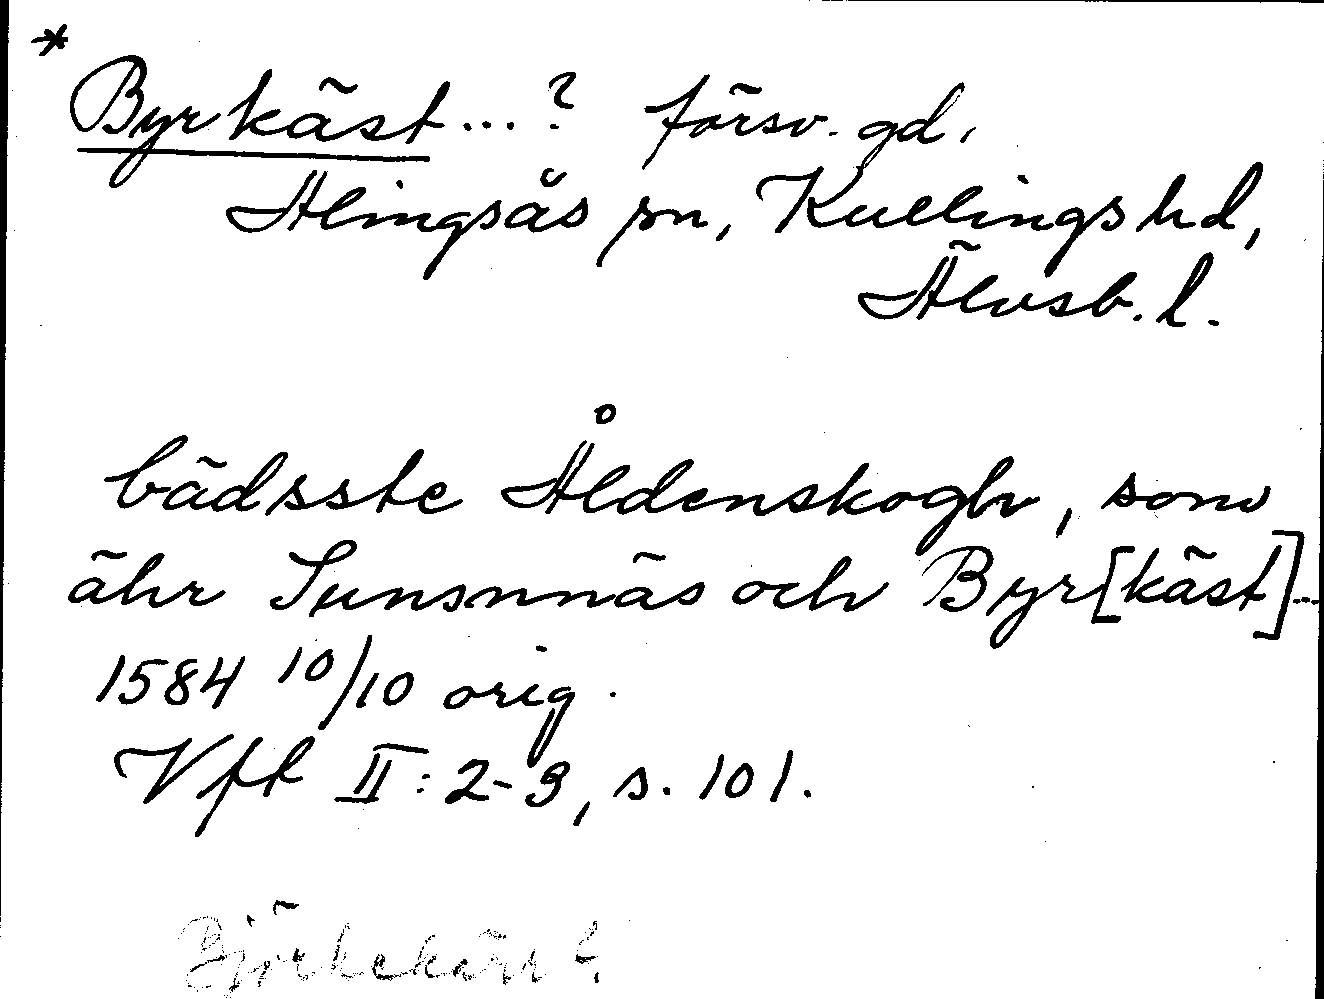 *
Byrkäst...? försv. gd,
Alingsås sn, Kullings hd,
Älvsb. l.
bädsste Åldenskogh, som
ähr Sunsnnäs och Byr[käst]...
1584 10/10 orig.
Vft II: 2-3, s. 101.
Björkekärr?